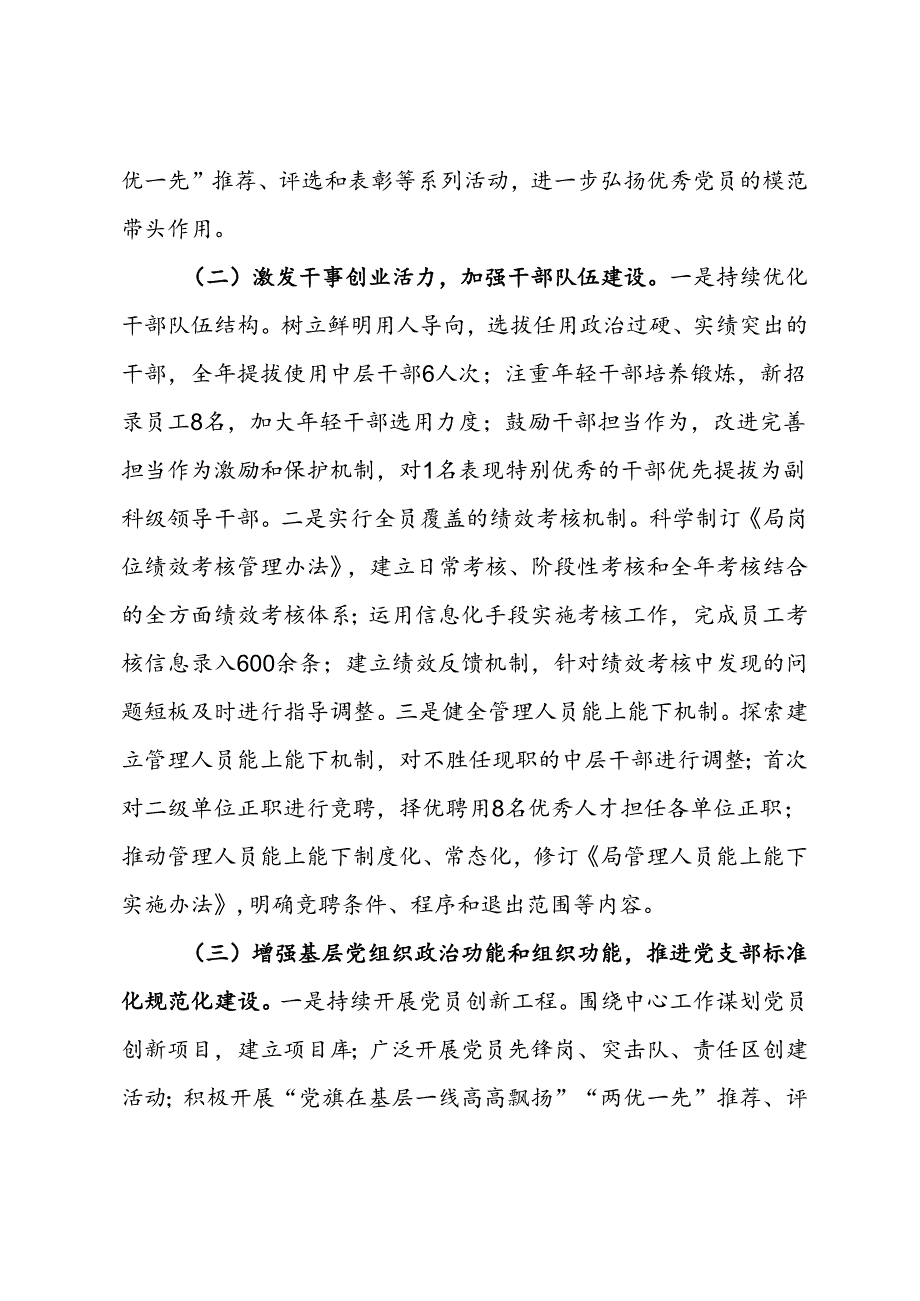 优一先”推荐、评选和表彰等系列活动，进一步弘扬优秀党员的模范
带头作用。
（二）激发干事创业活力，加强干部队伍建设。一是持续优化
干部队伍结构。树立鲜明用人导向，选拔任用政治过硬、实绩突出的
干部，全年提拔使用中层干部6人次；注重年轻干部培养锻炼，新招
录员工8名，加大年轻干部选用力度；鼓励干部担当作为，改进完善
担当作为激励和保护机制，对1名表现特别优秀的干部优先提拔为副
科级领导干部。二是实行全员覆盖的绩效考核机制。科学制订《局岗
位绩效考核管理办法》，建立日常考核、阶段性考核和全年考核结合
的全方面绩效考核体系；运用信息化手段实施考核工作，完成员工考
核信息录入600余条；建立绩效反馈机制，针对绩效考核中发现的问
题短板及时进行指导调整。三是健全管理人员能上能下机制。探索建
立管理人员能上能下机制，对不胜任现职的中层干部进行调整；首次
对二级单位正职进行竞聘，择优聘用8名优秀人才担任各单位正职；
推动管理人员能上能下制度化、常态化，修订《局管理人员能上能下
实施办法》,明确竞聘条件、程序和退出范围等内容。
（三）增强基层党组织政治功能和组织功能，推进党支部标准
化规范化建设。一是持续开展党员创新工程。围绕中心工作谋划党员
创新项目，建立项目库；广泛开展党员先锋岗、突击队、责任区创建
活动；积极开展“党旗在基层一线高高飘扬”“两优一先”推荐、评